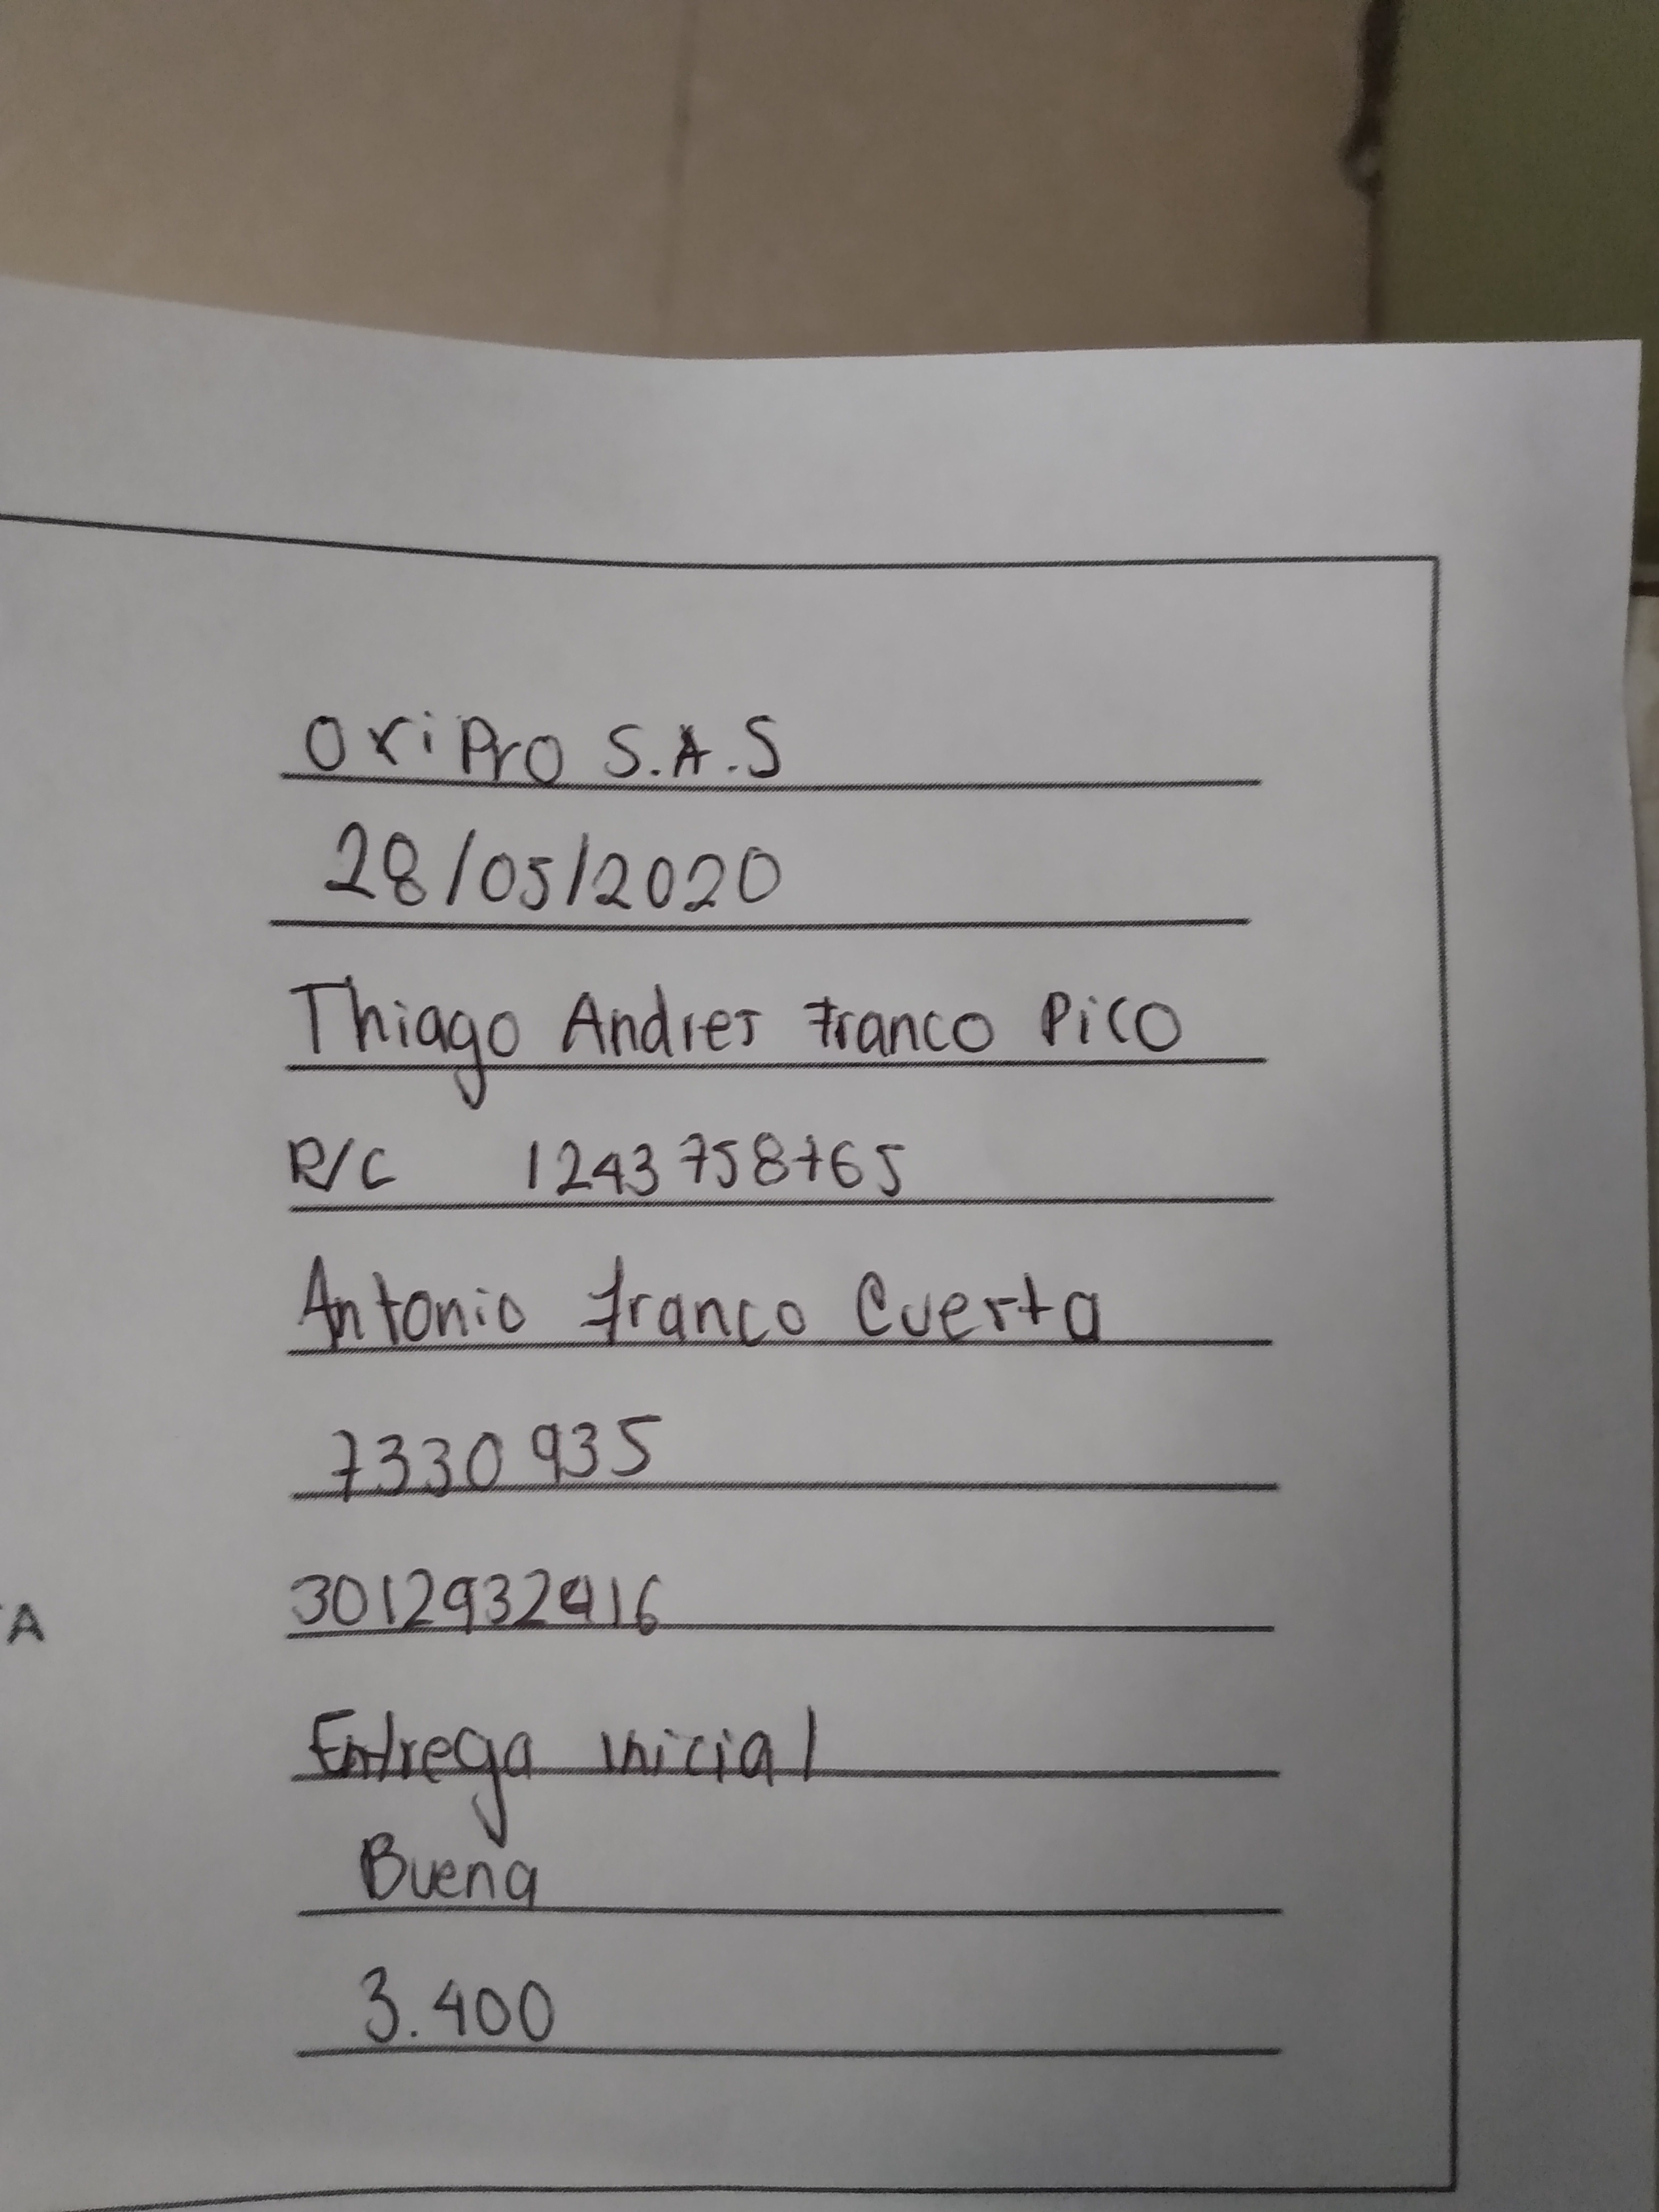 OxiPro S.A.S
28/05/2020
Thiago Andres Franco Pico
R/C 1243758765
Antonio Franco Cuesta
7330935
3012932416
A
Entrega inicial
Buena
3.400